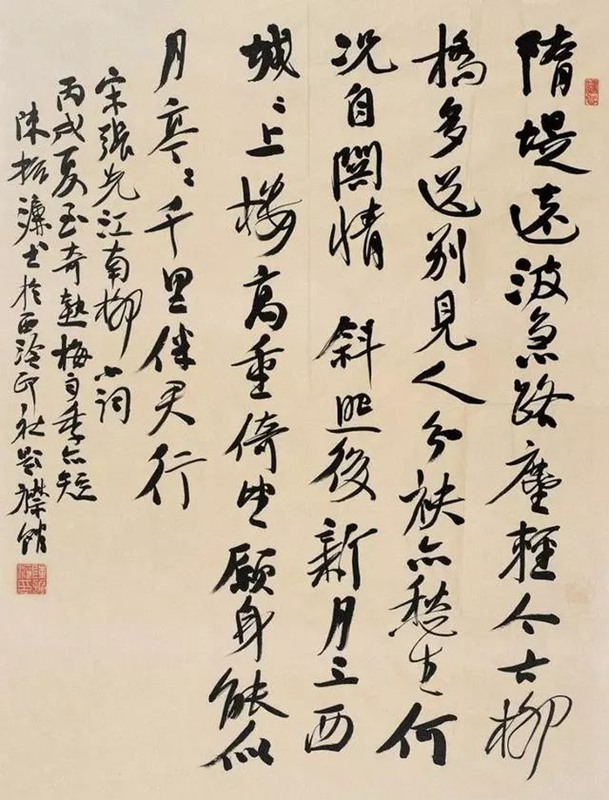 隋堤遠波急路塵輕今古柳
橋多送別見人分袂亦愁生何
況自關情 斜照後新月上西
城〻上樓高重倚望願身能似
月亭〻千里伴君行
宋張先江南柳小詞
丙戌夏至奇熱梅雨季亦短
陳振濂書於西泠印社